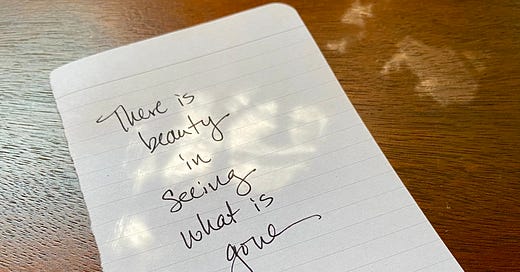 There is
beauty
in
seeing
what is
gone